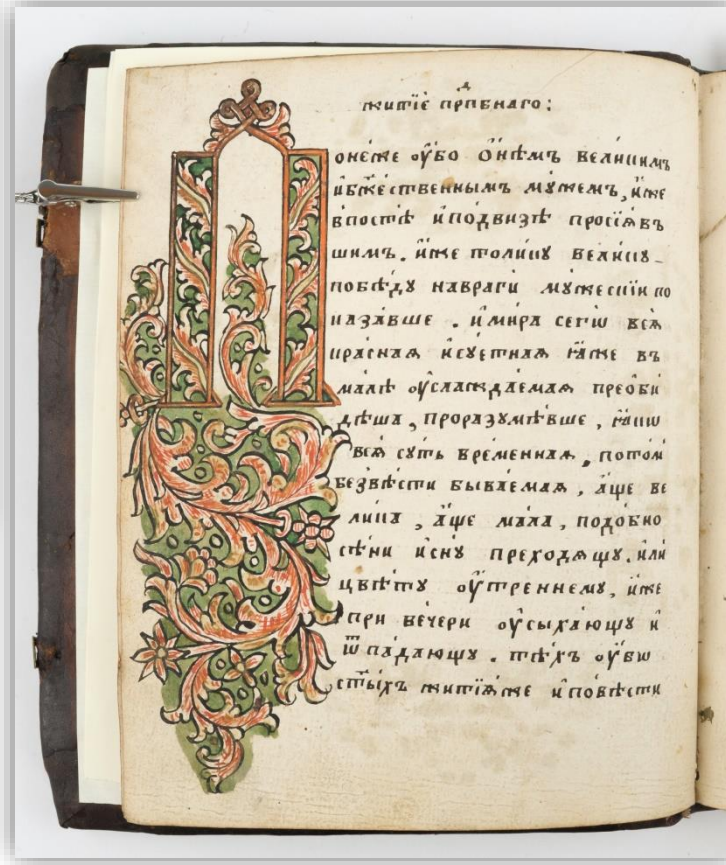 д
житїѐ прп҇бнаго:
Поне́же ᲂу҆́бо ѻ҆́нѣмъ вели́кимъ
и҆бж҇е́ственнымъ мꙋ́жемъ, и҆́же
впостѣ̀ и҆по́двизѣ просїѧ́въ
шимъ. и҆́же толи́кꙋ вели́кꙋ
побѣ́дꙋ наврагѝ мꙋ́жескїи по
каза́вше. и҆ми́ра сегѡ̀ всѧ̑
кра́снаѧ и҆сꙋ́етнаѧ ꙗ҆́же въ
ма́лѣ ᲂу҆слажда́емаѧ преѻби
дѣ́ша, проразꙋмѣ́вше, ꙗ҆́кѡ
всѧ̑ сꙋ́ть вре́меннаѧ, пото́м
безвѣ́сти быва́емаѧ, а҆́ще ве
лика, а҆́ще ма́ла, подо́бно
сѣ́ни и҆снꙋ̀ преходѧ́щꙋ. и҆лѝ
цвѣ́тꙋ ᲂу҆́треннемꙋ, и҆́же
при ве́чери ᲂу҆сыха́ющꙋ и҆
ѿпа́дающꙋ. тѣ́хъ ᲂу҆́бѡ
ст҃ы́хъ житїѧ́же и҆по́вѣсти